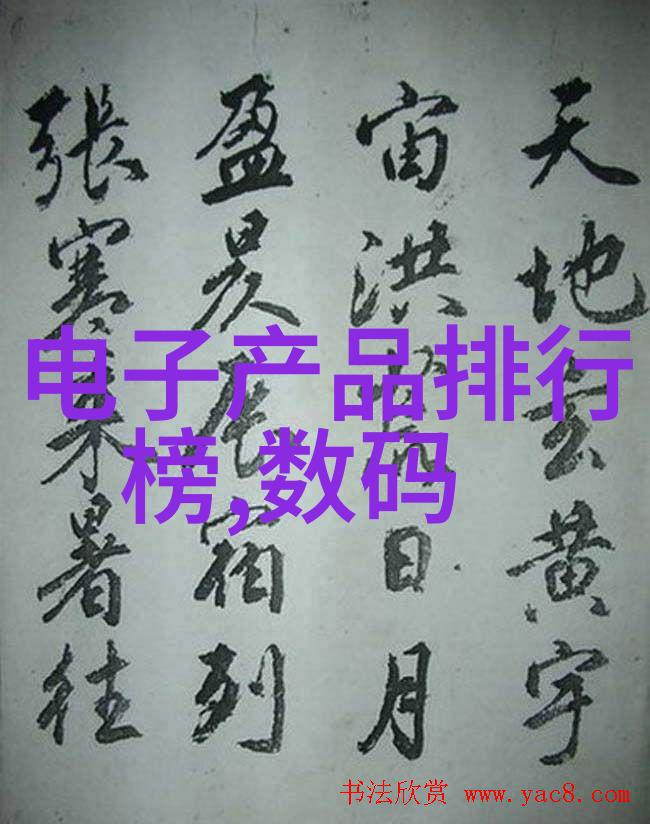 天地玄黄宇
宙洪荒日月
盈昃辰宿列
張寒来暑往
电子产品排行
榜,数码
书法欣赏 www.yac8.com